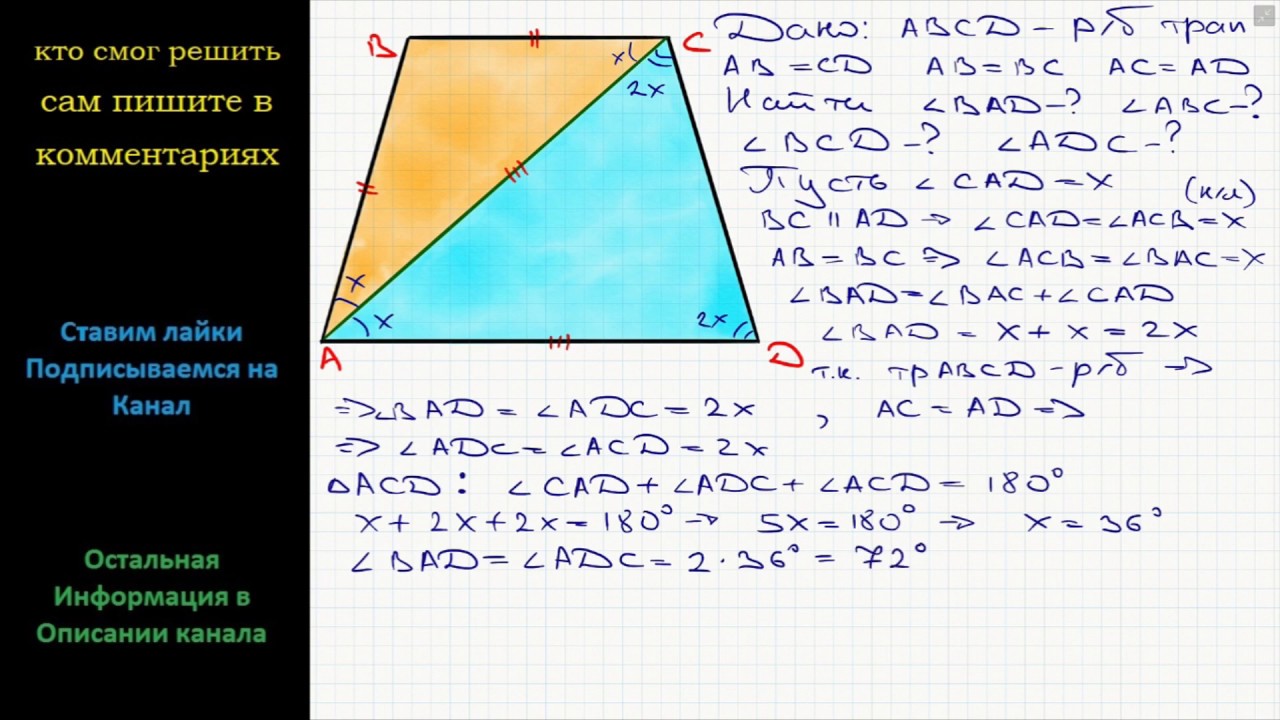 кто смог решить
сам пишите в
комментариях
Ставим лайки
Подписываемся на
Канал
Остальная
Информация в
Описании канала
B
C
x
2x
x
x
2x
A
D
Дано: ABCD - р/б трап
AB = CD AB = BC AC = AD
Найти ∠BAD-? ∠ABC-?
∠BCD-? ∠ADC-?
Пусть ∠CAD = x (н/л)
BC || AD ⇒ ∠CAD = ∠ACB = x
AB = BC ⇒ ∠ACB = ∠BAC = x
∠BAD = ∠BAC + ∠CAD
∠BAD = x + x = 2x
т.к. трABCD - р/б ⇒
⇒ ∠BAD = ∠ADC = 2x , AC = AD ⇒
⇒ ∠ADC = ∠ACD = 2x
△ACD : ∠CAD + ∠ADC + ∠ACD = 180°
x + 2x + 2x = 180° → 5x = 180° → x = 36°
∠BAD = ∠ADC = 2 · 36° = 72°